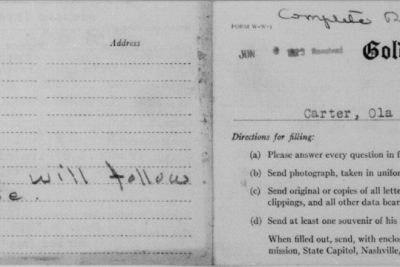 Address
will follow
e.
Complete R
FORM W-W-1
JUN 1923 Received
Gol
Carter, Ola
Directions for filling:
(a) Please answer every question in f
(b) Send photograph, taken in unifor
(c) Send original or copies of all lette
clippings, and all other data bear
(d) Send at least one souvenir of his
When filled out, send, with enclo
mission, State Capitol, Nashville,